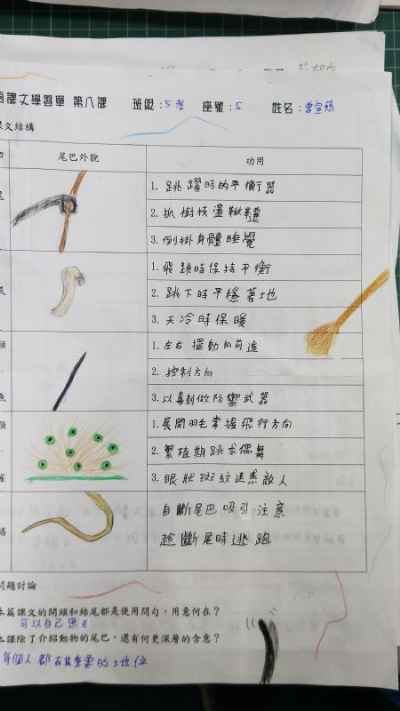 課文學習單 第八課 班級:5孝 座號:5 姓名:
課文結構
尾巴外貌 功用
1. 跳躍時的平衡器
2. 抓樹枝盪鞦韆
3. 倒掛身體睡覺
1. 飛躍時保持平衡
2. 跳下時平穩著地
3. 天冷時保暖
1. 左右擺動向前進
2. 控制方向
3. 以毒刺做防禦武器
1. 展開羽毛掌握飛行方向
2. 繁殖期跳求偶舞
3. 眼狀斑紋迷惑敵人
自斷尾巴吸引注意
趁斷尾時逃跑
問題討論
本篇課文的開頭和結尾都是使用問句,用意何在?
可以自己思考
本課除了介紹動物的尾巴,還有何更深層的含意?
每個人都有其重要的地位